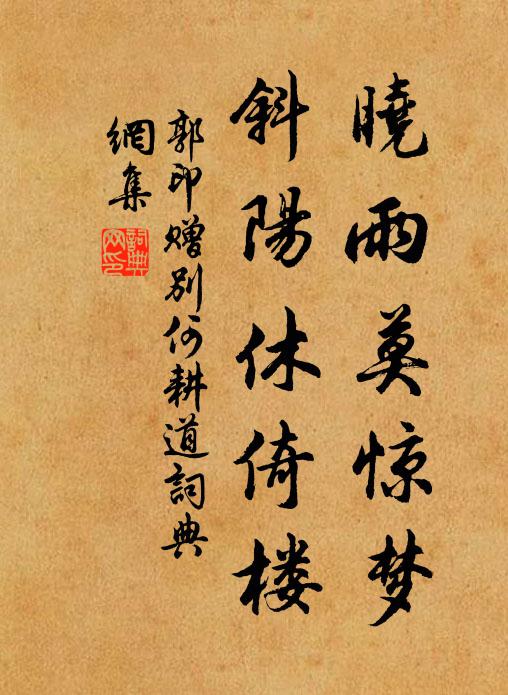 曉雨莫惊梦
斜陽休倚楼
郭印赠别何耕道詞典
網集
詞典網印